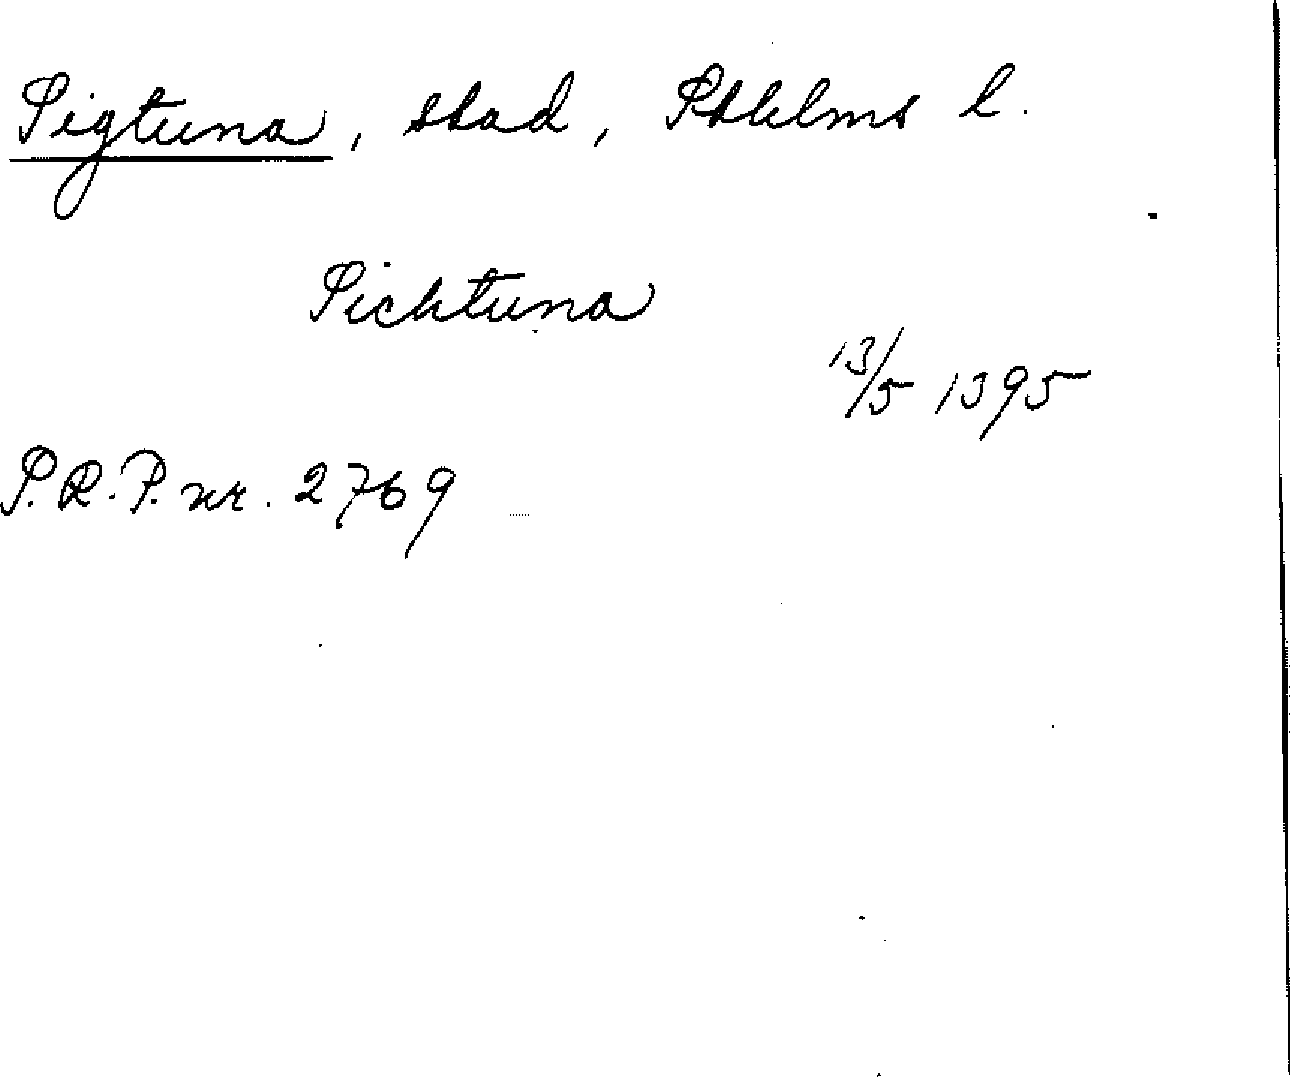 Sigtuna, stad, Sthlms l.
Sichtuna
13/5 1395
S.R.P. nr. 2769